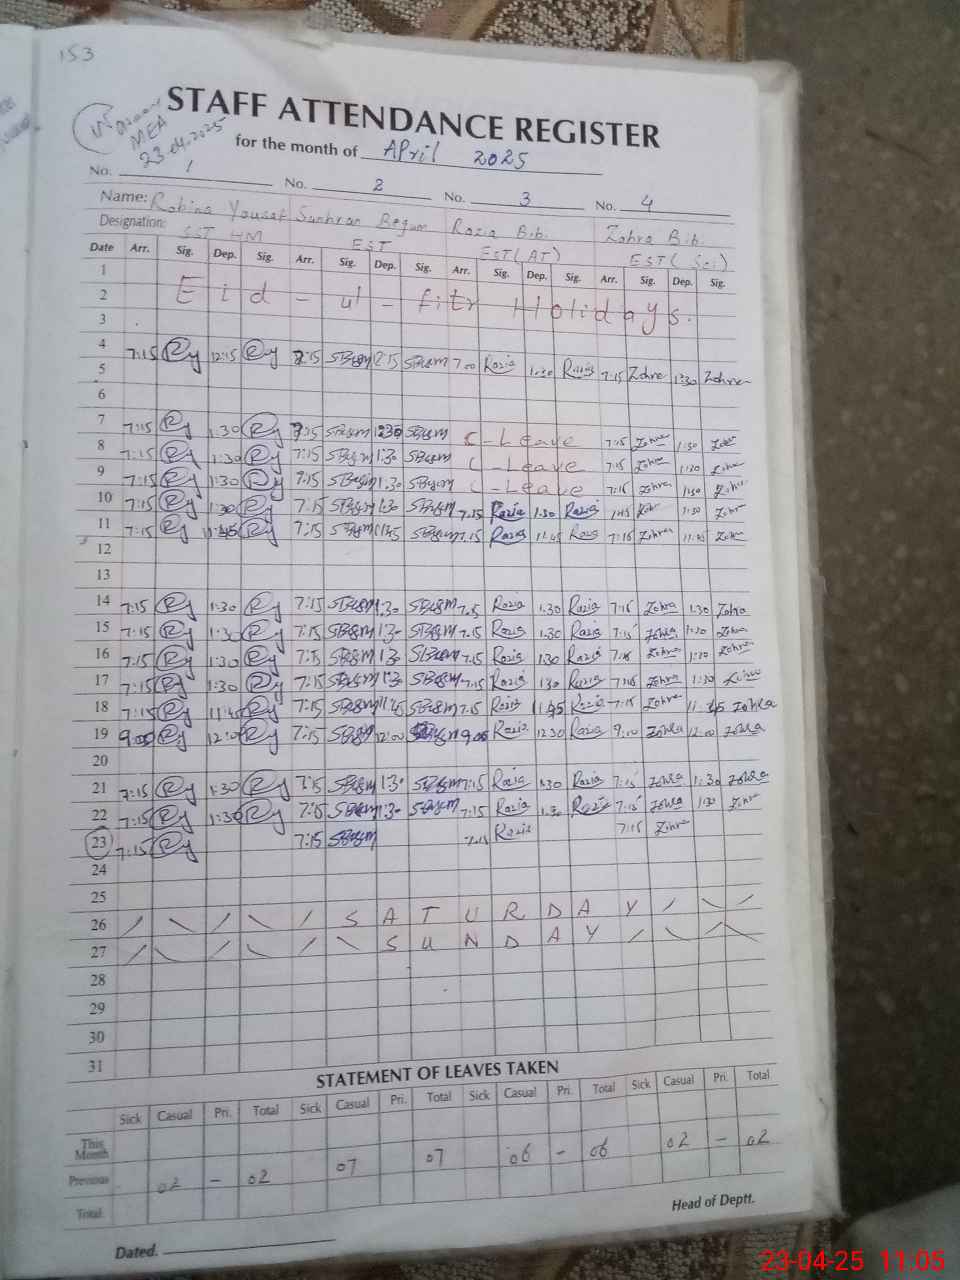 153
STAFF ATTENDANCE REGISTER
MEA
23-04-2025
for the month of April 2025
No. 1 No. 2 No. 3 No. 4
Name: Robina Yousaf Begum Razia Bibi Zohra Bibi
Designation: SST HM EST EST (AT) EST (Sci)
Date Arr. Sig. Dep. Sig. Arr. Sig. Dep. Sig. Arr. Sig. Dep. Sig. Arr. Sig. Dep. Sig.
1
2 Eid - ul - fitr Holidays.
3
4
5 7:15 Ry 12:15 Ry SBegum SBegum 7:00 Razia Razia 7:15 Zohra Zohra
6
7 7:15 Ry 1:30 Ry 7:15 SBegum SBegum C-Leave 7:15 Zohra 1:30 Zohra
8 7:15 Ry 1:30 Ry 7:15 SBegum 1:30 SBegum C-Leave 7:15 Zohra 1:30 Zohra
9 7:15 Ry 1:30 Ry 7:15 SBegum 1:30 SBegum C-Leave 7:15 Zohra 1:30 Zohra
10 7:15 Ry 1:30 Ry 7:15 SBegum 1:30 SBegum 7:15 Razia 1:30 Razia 1:30 Zohra
11 7:15 Ry 11:45 Ry 7:15 SBegum 11:45 SBegum 7:15 Razia 11:45 Razia 7:15 Zohra 11:45 Zohra
12
13
14 7:15 Ry 1:30 Ry 7:15 SBegum 1:30 SBegum 7:15 Razia 1:30 Razia 7:15 Zohra 1:30 Zohra
15 7:15 Ry 1:30 Ry 7:15 SBegum 1:30 SBegum 7:15 Razia 1:30 Razia 7:15 Zohra 1:30 Zohra
16 7:15 Ry 1:30 Ry 7:15 SBegum 1:30 SBegum 7:15 Razia 1:30 Razia 7:15 Zohra 1:30 Zohra
17 7:15 Ry 1:30 Ry 7:15 SBegum 1:30 SBegum 7:15 Razia 1:30 Razia 7:15 Zohra 1:30 Zohra
18 7:15 Ry 11:45 Ry 7:15 SBegum 11:45 SBegum 7:15 Razia 11:45 Razia 7:15 Zohra 11:45 Zohra
19 9:00 Ry 12:00 Ry 7:15 SBegum 12:00 9:00 Razia 12:30 Razia 9:00 Zohra 12:00 Zohra
20
21 7:15 Ry 1:30 Ry 7:15 SBegum 1:30 SBegum 7:15 Razia 1:30 Razia 7:15 Zohra 1:30 Zohra
22 7:15 Ry 1:30 Ry 7:15 SBegum 1:30 SBegum 7:15 Razia 1:30 Razia 7:15 Zohra 1:30 Zohra
23 7:15 Ry 7:15 SBegum 7:15 Razia 7:15 Zohra
24
25
26 SATURDAY
27 SUNDAY
28
29
30
31
STATEMENT OF LEAVES TAKEN
Sick Casual Pri. Total Sick Casual Pri. Total Sick Casual Pri. Total Sick Casual Pri. Total
This Month
Previous 02 - 02 07 07 06 - 06 02 - 02
Total
Dated.
Head of Deptt.
23-04-25 11:05